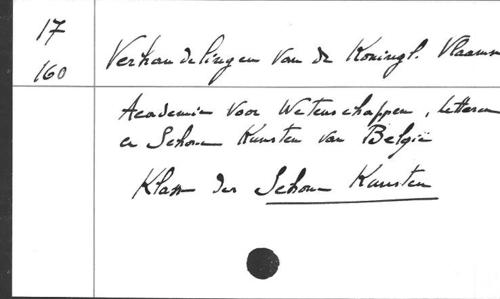 17
160
Verhandelingen van de Koningl. Vlaamse
Academie voor Wetenschappen, Letteren
en Schone Kunsten van België
Klasse der Schone Kunsten